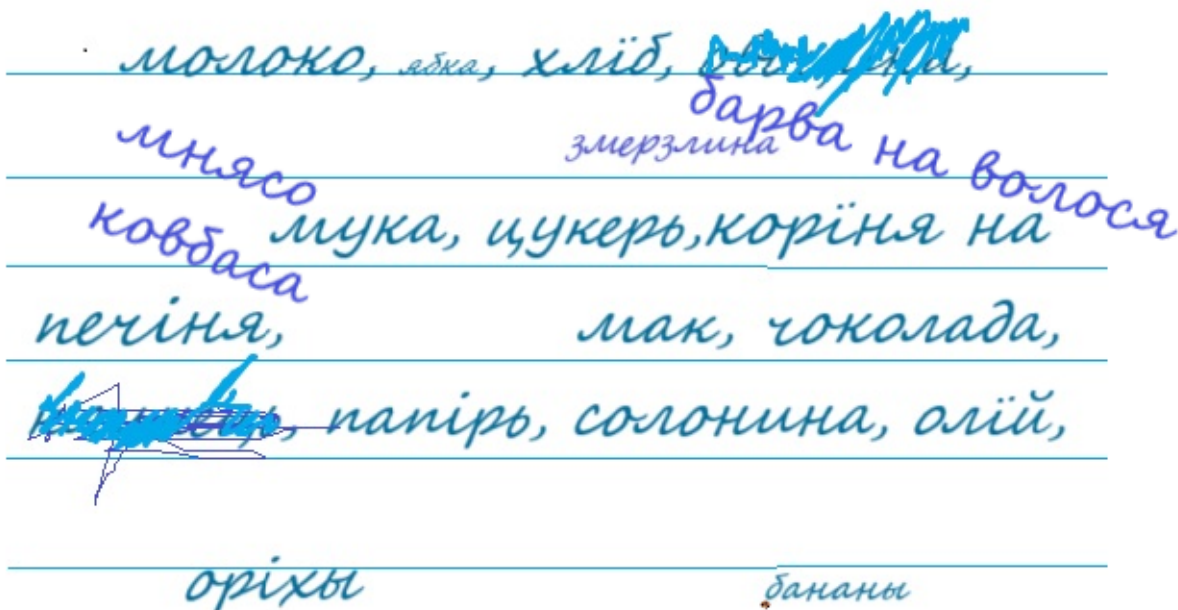 молоко, ябка, хлїб,
барва на волося
мнясо
змерзлина
ковбаса
мука, цукерь,корїня на
печіня, мак, чоколада,
папірь, солонина, олїй,
оріхы бананы